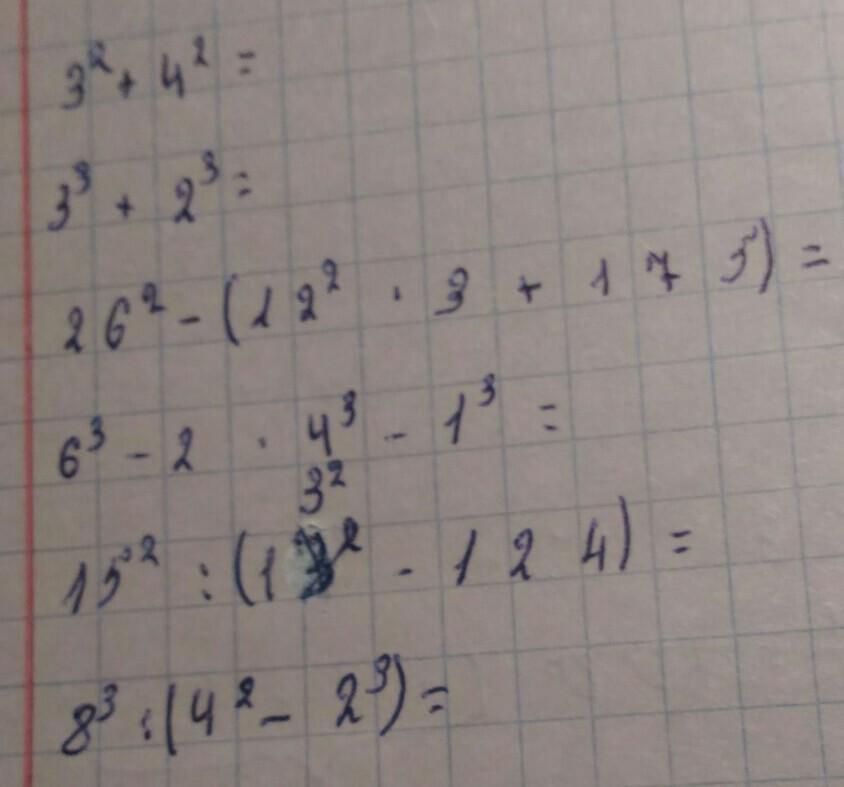 3² + 4² =
3³ + 2³ =
26² - (12² · 3 + 175) =
6³ - 2 · 4³ - 1³ =
3²
15² : (13² - 124) =
8³ : (4² - 2³) =